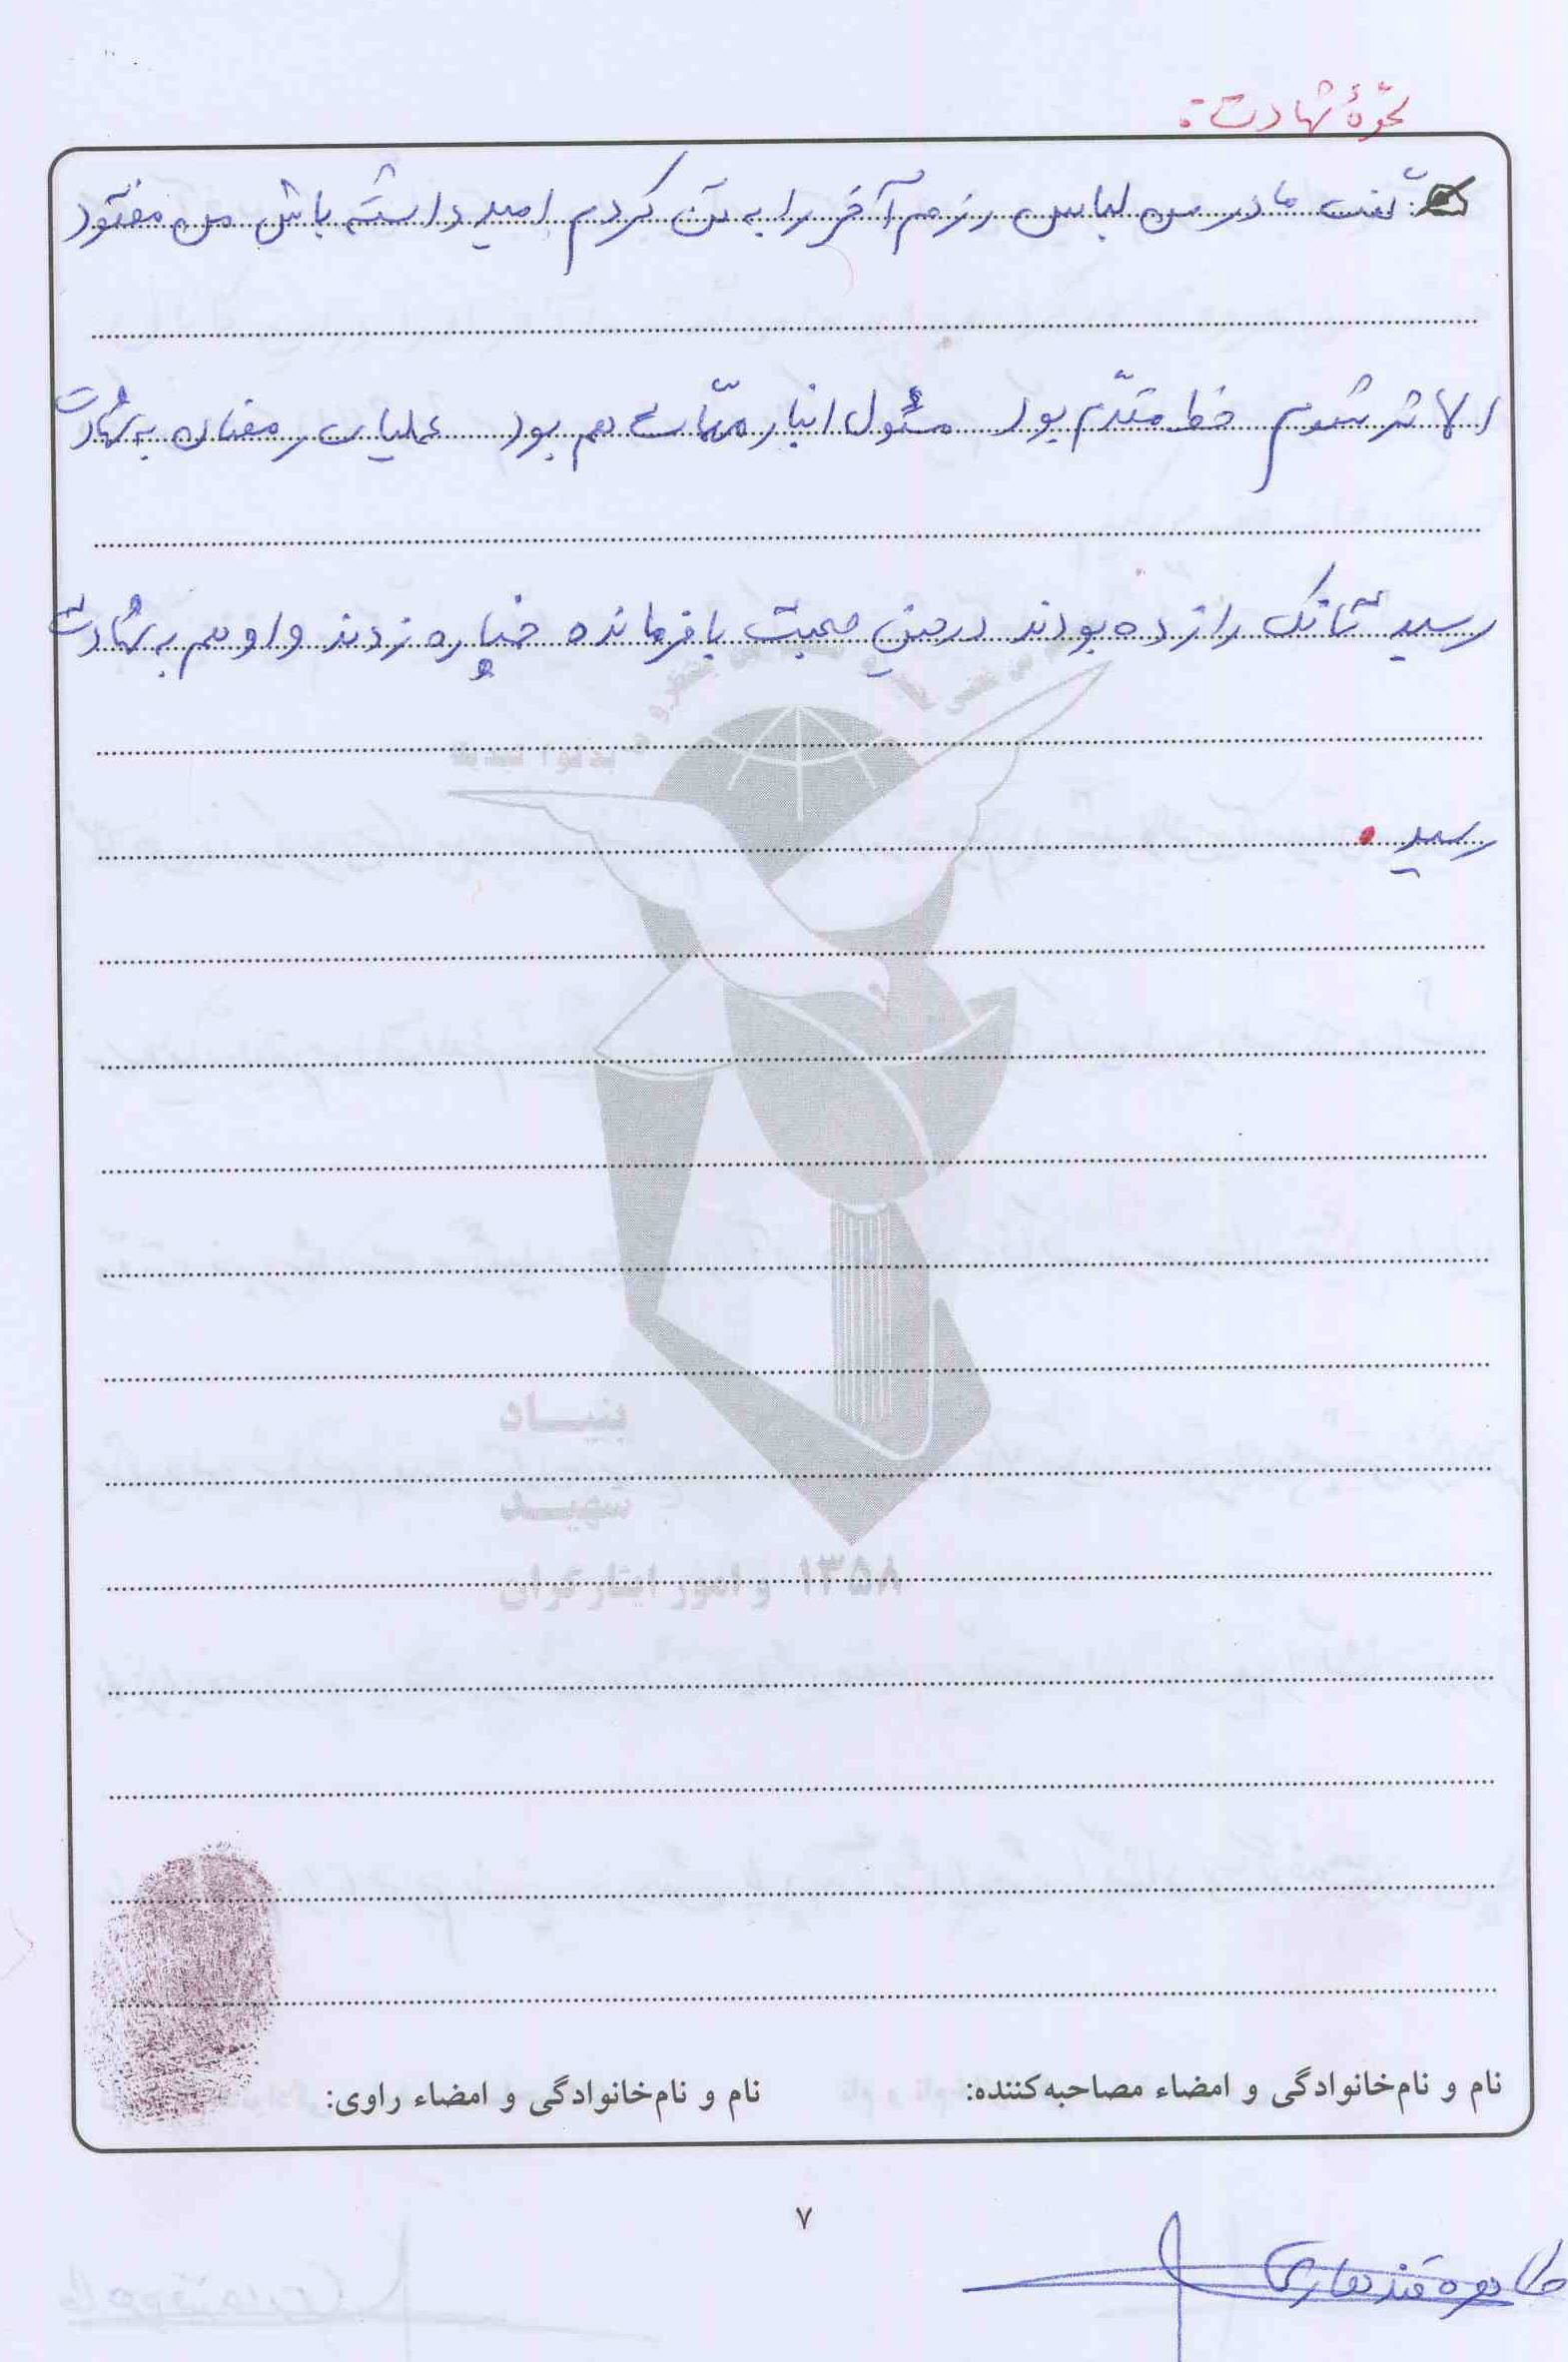 نحوۀ شهادت:
گفت مادر من لباس رزم آخر را به تن کردم امید داشته باش من مفقود
الاثر شوم خط مقدّم بود مسئول انبار مهمّات هم بود عملیات رمضان به شهادت
رسید تانک را زده بودند در حین صحبت با فرمانده خمپاره زدند و او هم به شهادت
رسید.
بنیاد
شهید
و امور ایثارگران ۱۳۵۸
نام و نام‌خانوادگی و امضاء مصاحبه‌کننده: نام و نام‌خانوادگی و امضاء راوی:
۷
طاهره قندهاری